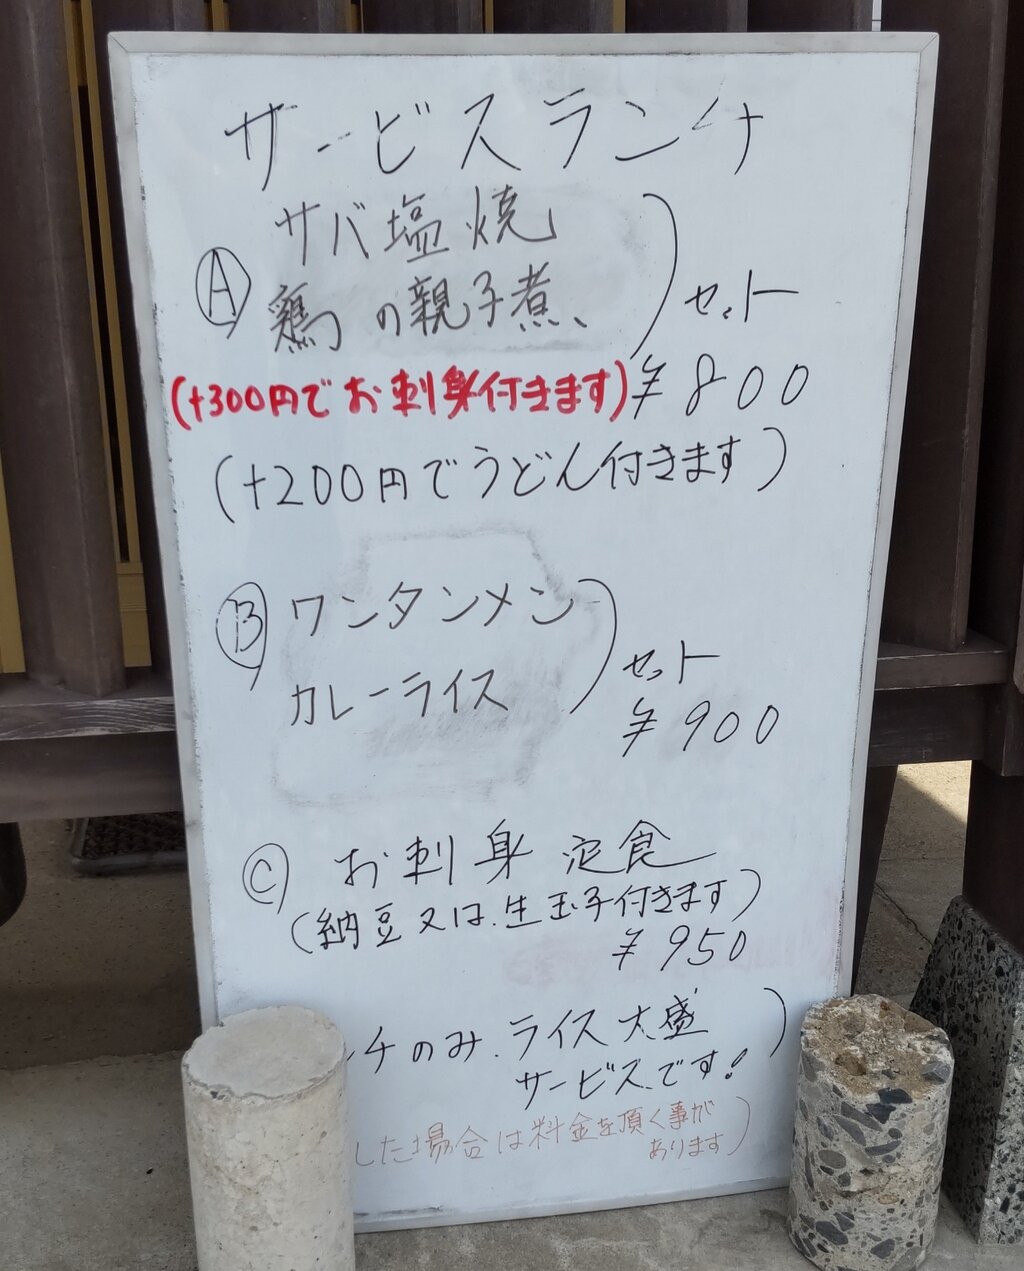 サービスランチ
Ⓐ サバ塩焼
鶏の親子煮、
セット
(+300円でお刺身付きます) ¥800
(+200円でうどん付きます)
Ⓑ ワンタンメン
カレーライス
セット
¥900
Ⓒ お刺身定食
(納豆又は、生玉子付きます)
¥950
ンチのみ、ライス大盛
サービスです!)
した場合は料金を頂く事が
あります)